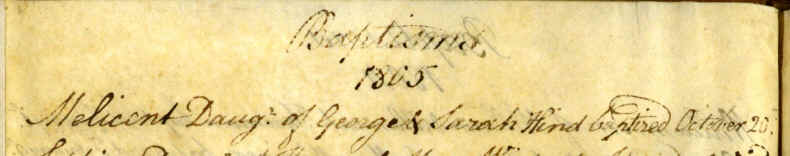 Baptisms
1805
Melicent Daugr. of George & Sarah Hind baptized October 20